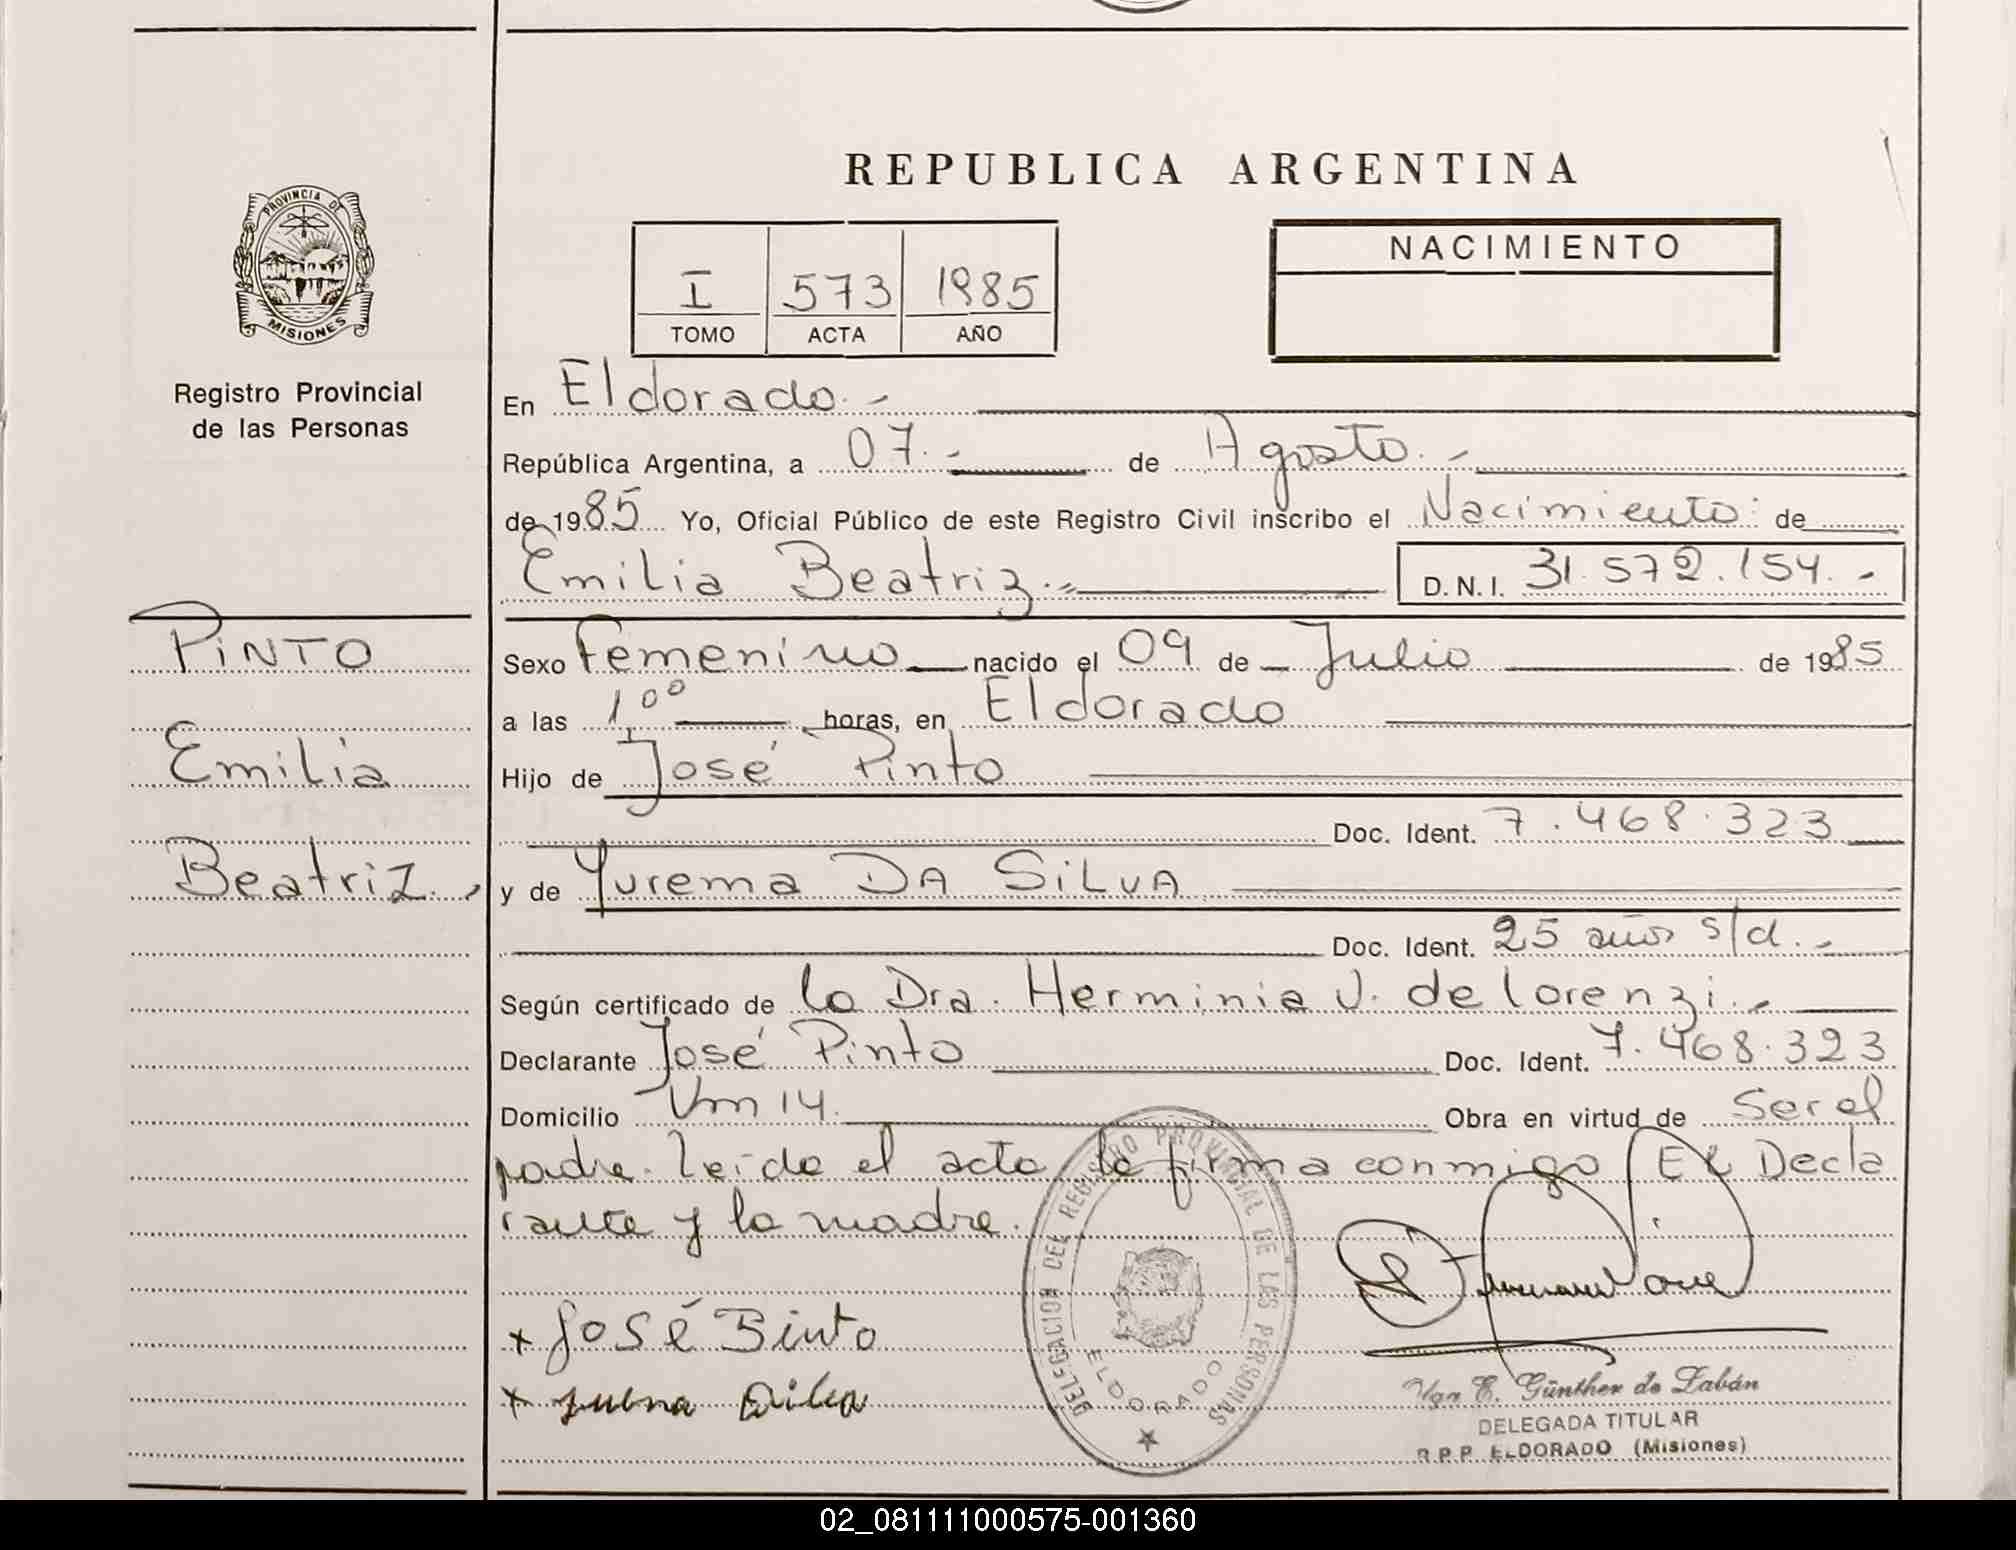 REPUBLICA ARGENTINA
PROVINCIA DE
MISIONES
Registro Provincial
de las Personas
I 573 1985
TOMO ACTA AÑO
NACIMIENTO
En Eldorado.-
República Argentina, a 07.- de Agosto.-
de 1985 Yo, Oficial Público de este Registro Civil inscribo el Nacimiento: de
Emilia Beatriz.= D.N.I. 31.572.154.-
PINTO
Emilia
Beatriz.,
Sexo Femenino nacido el 09 de Julio de 1985
a las 1⁰⁰ horas, en Eldorado
Hijo de José Pinto
Doc. Ident. 7.468.323
y de Yurema DA SiLVA
Doc. Ident. 25 años s/d.-
Según certificado de la Dra. Herminia J. de lorenzi.-
Declarante José Pinto Doc. Ident. 7.468.323
Domicilio Km 14. Obra en virtud de Ser el
padre. Leída el acta, la firma conmigo El Decla
rante y la madre.
DELEGACION DEL REGISTRO PROVINCIAL DE LAS PERSONAS
ELDORADO
+ José Binto
+
E. Günther de Zabán
DELEGADA TITULAR
R.P.P. ELDORADO (Misiones)
02_081111000575-001360